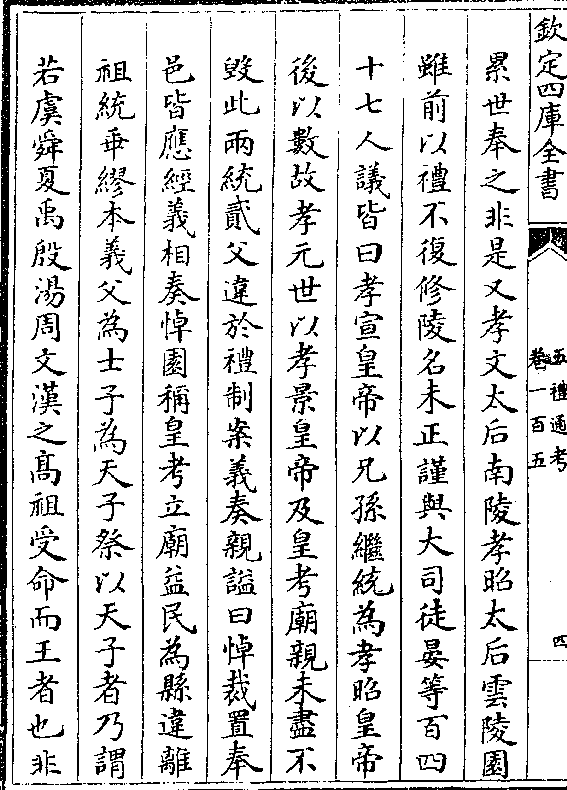 欽定四庫全書
五禮通考
卷一百五
四
累世奉之非是又孝文太后南陵孝昭太后雲陵園
雖前以禮不復修陵名未正謹與大司徒晏等百四
十七人議皆曰孝宣皇帝以兄孫繼統為孝昭皇帝
後以數故孝元世以孝景皇帝及皇考廟親未盡不
毀此兩統貳父違於禮制案義奏親諡曰悼裁置奉
邑皆應經義相奏悼園稱皇考立廟益民為縣違離
祖統乖繆本義父為士子為天子祭以天子者乃謂
若虞舜夏禹殷湯周文漢之髙祖受命而王者也非